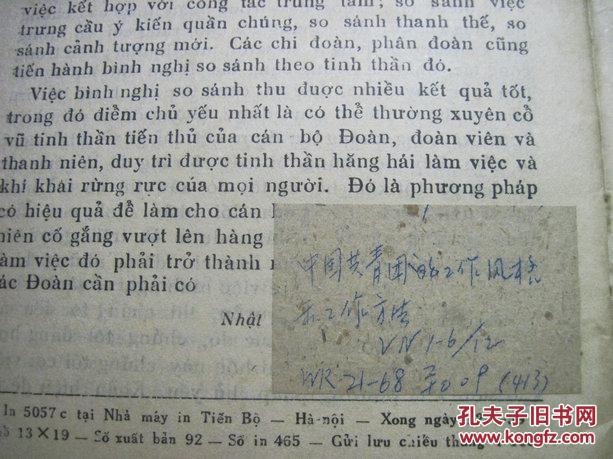 việc kết hợp với công tác trung tâm; so sánh việc
trưng cầu ý kiến quần chúng, so sánh thanh thế, so
sánh cảnh tượng mới. Các chi đoàn, phân đoàn cũng
tiến hành bình nghị so sánh theo tinh thần đó.
Việc bình nghị so sánh thu được nhiều kết quả tốt,
trong đó điểm chủ yếu nhất là có thể thường xuyên cổ
vũ tinh thần tiến thủ của cán bộ Đoàn, đoàn viên và
thanh niên, duy trì được tinh thần hăng hái làm việc và
khí khái rừng rực của mọi người. Đó là phương pháp
có hiệu quả để làm cho cán
niên cố gắng vượt lên hàng
làm việc đó phải trở thành
ác Đoàn cần phải có
Nhật
中国共青团的工作风格
和工作方法
VN 1-6/12
WR 21-68 (413)
In 5057c tại Nhà máy in Tiến Bộ — Hà-nội — Xong ngày
13×19 — Số xuất bản 92 — Số in 465 — Gửi lưu chiểu tháng
孔夫子旧书网
www.kongfz.com